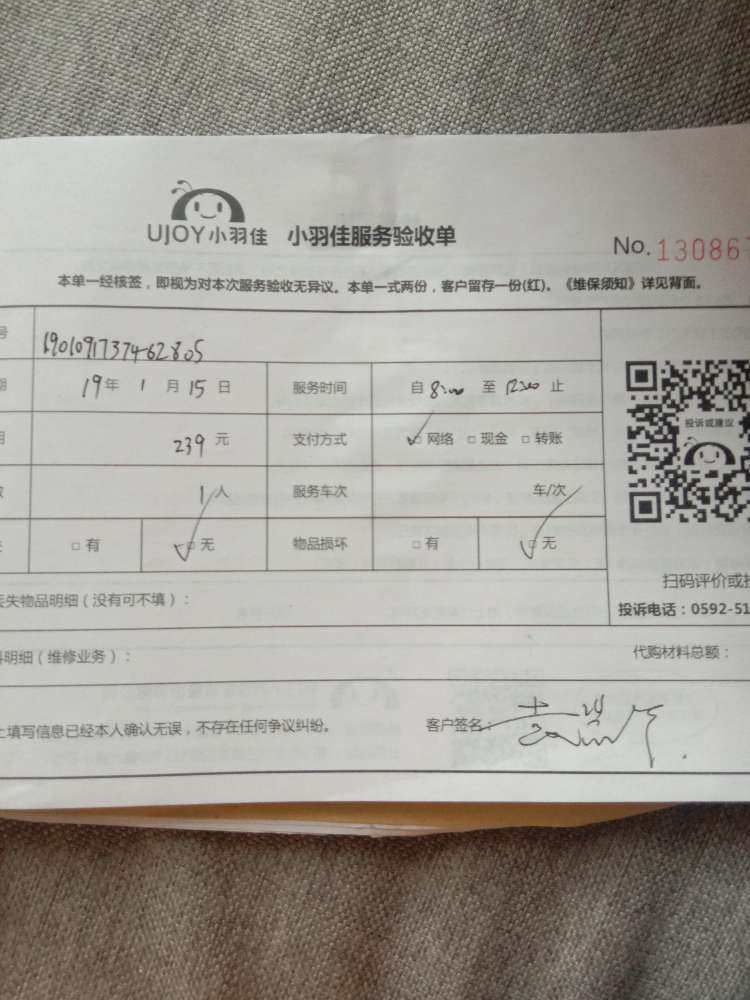 UJOY小羽佳 小羽佳服务验收单
No. 130867
本单一经核签，即视为对本次服务验收无异议。本单一式两份，客户留存一份(红)。《维保须知》详见背面。
号 1901091737462805
期 19年 1月 15日 服务时间 自 8:00 至 12:00 止
用 239元 支付方式 网络 □ 现金 □ 转账
数 1人 服务车次 车/次
□ 有 无 物品损坏 □ 有 无
投诉或建议
扫码评价或投
投诉电话：0592-51
丢失物品明细（没有可不填）：
料明细（维修业务）： 代购材料总额：
上填写信息已经本人确认无误，不存在任何争议纠纷。 客户签名：